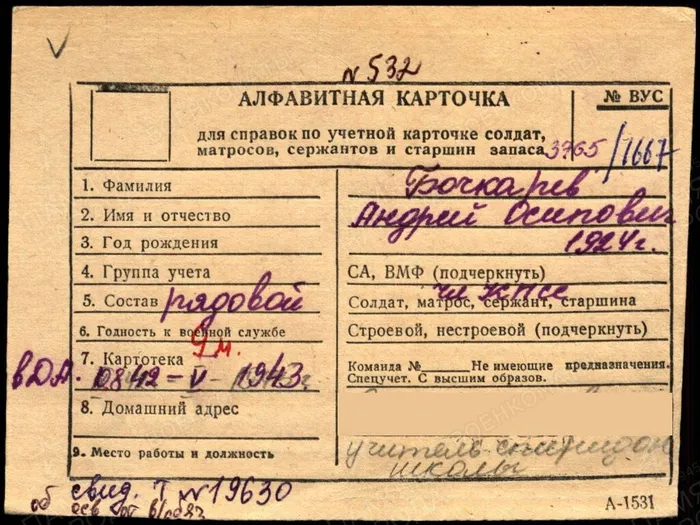 N 532
АЛФАВИТНАЯ КАРТОЧКА
№ ВУС
для справок по учетной карточке солдат,
матросов, сержантов и старшин запаса
3765/1667
1. Фамилия
Бочкарев
2. Имя и отчество
Андрей Осипович
3. Год рождения
1924 г.
4. Группа учета
СА, ВМФ (подчеркнуть)
5. Состав рядовой
чл КПСС
Солдат, матрос, сержант, старшина
6. Годность к военной службе
Строевой, нестроевой (подчеркнуть)
7. Картотека
Команда № Не имеющие предназначения.
Спецучет. С высшим образов.
в ДА. 0842 - V - 1943 г
8. Домашний адрес
9. Место работы и должность
учитель
школы
свид. Т N 19630
об осв от
А-1531